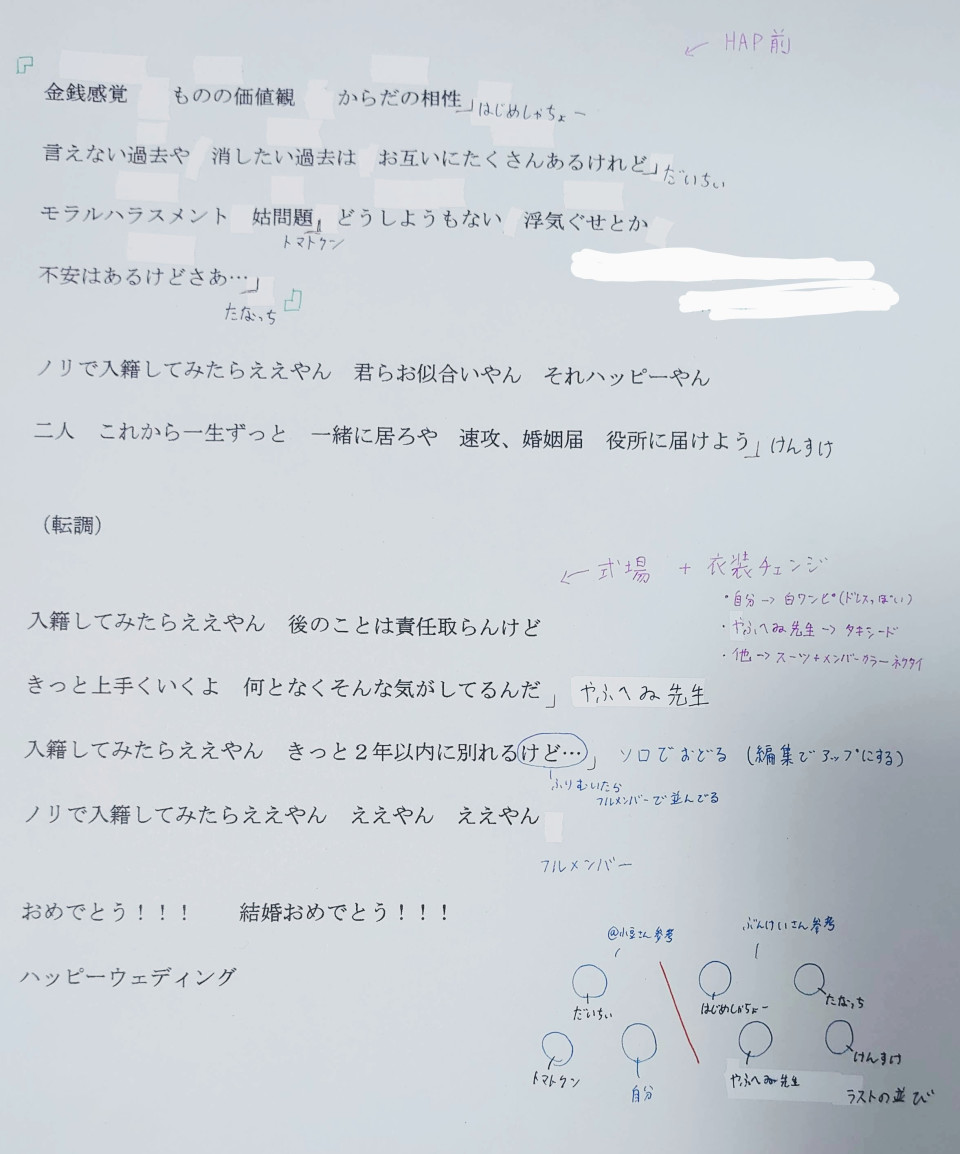 ← HAP前
『
金銭感覚　ものの価値観　からだの相性」はじめしゃちょー
言えない過去や　消したい過去は　お互いにたくさんあるけれど」だいちぃ
モラルハラスメント　姑問題」どうしようもない　浮気ぐせとか
トマトクン
不安はあるけどさあ…」
たなっち
』
ノリで入籍してみたらええやん　君らお似合いやん　それハッピーやん
二人　これから一生ずっと　一緒に居ろや　速攻、婚姻届　役所に届けよう」けんすけ
（転調）
← 式場 + 衣装チェンジ
・自分→白ワンピ(ドレスっぽい)
・やふへゐ先生→タキシード
・他→スーツ+メンバーカラーネクタイ
入籍してみたらええやん　後のことは責任取らんけど
きっと上手くいくよ　何となくそんな気がしてるんだ」やふへゐ先生
入籍してみたらええやん　きっと２年以内に別れるけど…」ソロでおどる (編集でアップにする)
ふりむいたら
フルメンバーで並んでる
ノリで入籍してみたらええやん　ええやん　ええやん
フルメンバー
おめでとう！！！　結婚おめでとう！！！
ハッピーウェディング
@小豆さん参考
ぶんけいさん参考
だいちぃ
はじめしゃちょー
たなっち
トマトクン
自分
やふへゐ先生
けんすけ
ラストの並び